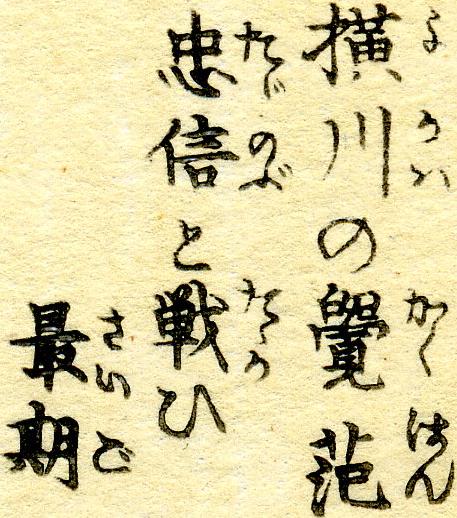 横川の覺范
よかハかくはん
忠信と戦ひ
たゞのぶたゝか
最期
さいご